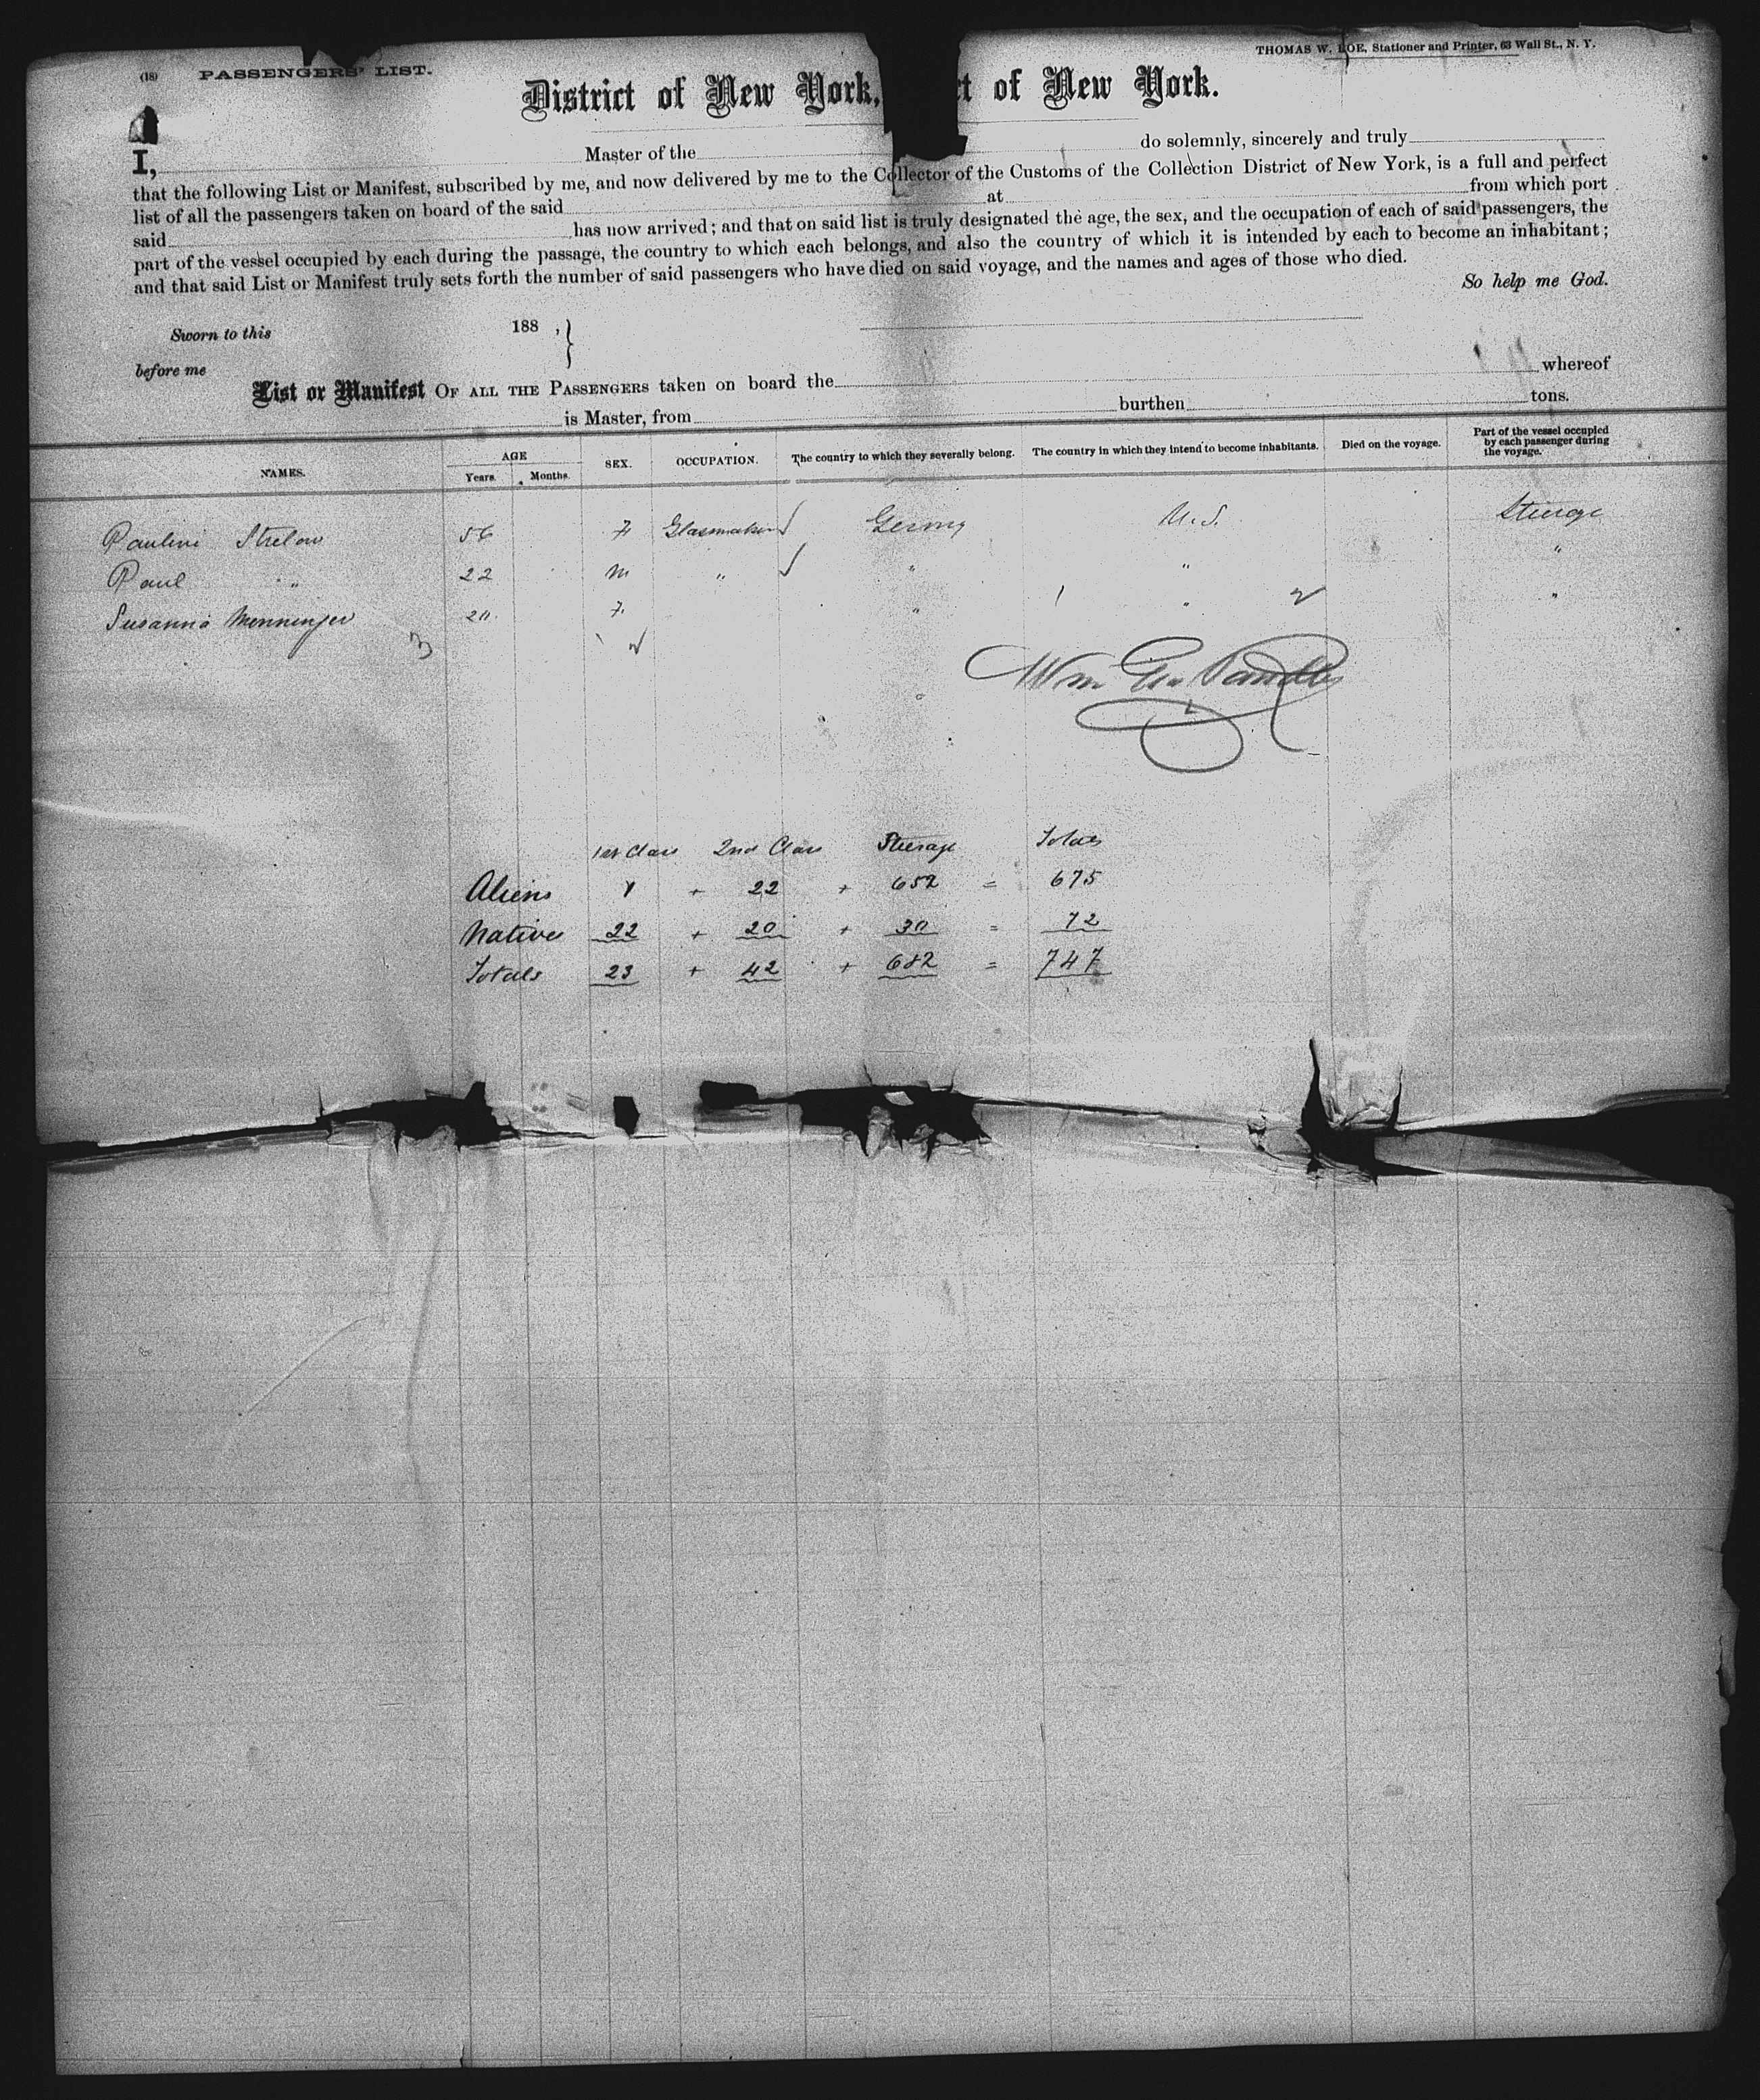 (18) PASSENGERS' LIST.
THOMAS W. LOE, Stationer and Printer, 63 Wall St., N. Y.
District of New York, ct of New York.
I, Master of the do solemnly, sincerely and truly
that the following List or Manifest, subscribed by me, and now delivered by me to the Collector of the Customs of the Collection District of New York, is a full and perfect
list of all the passengers taken on board of the said at from which port
said has now arrived; and that on said list is truly designated the age, the sex, and the occupation of each of said passengers, the
part of the vessel occupied by each during the passage, the country to which each belongs, and also the country of which it is intended by each to become an inhabitant;
and that said List or Manifest truly sets forth the number of said passengers who have died on said voyage, and the names and ages of those who died.
So help me God.
Sworn to this 188 , }
before me
List or Manifest OF ALL THE PASSENGERS taken on board the whereof
is Master, from burthen tons.
NAMES. AGE Years. Months. SEX. OCCUPATION. The country to which they severally belong. The country in which they intend to become inhabitants. Died on the voyage. Part of the vessel occupied by each passenger during the voyage.
Pauline Strelow 56 F Glasmaker Germy U.S. Steerage
Paul " 22 m " " " "
Susanna Menninger 20 F. " " "
3
1st Class 2nd Class Steerage Totals
Aliens 1 + 22 + 652 = 675
Natives 22 + 20 + 30 = 72
Totals 23 + 42 + 682 = 747